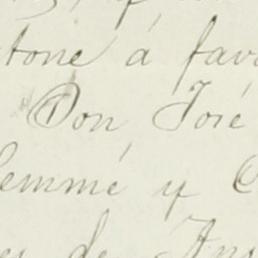 tone á fav
Don José
emmé y C
de Ans